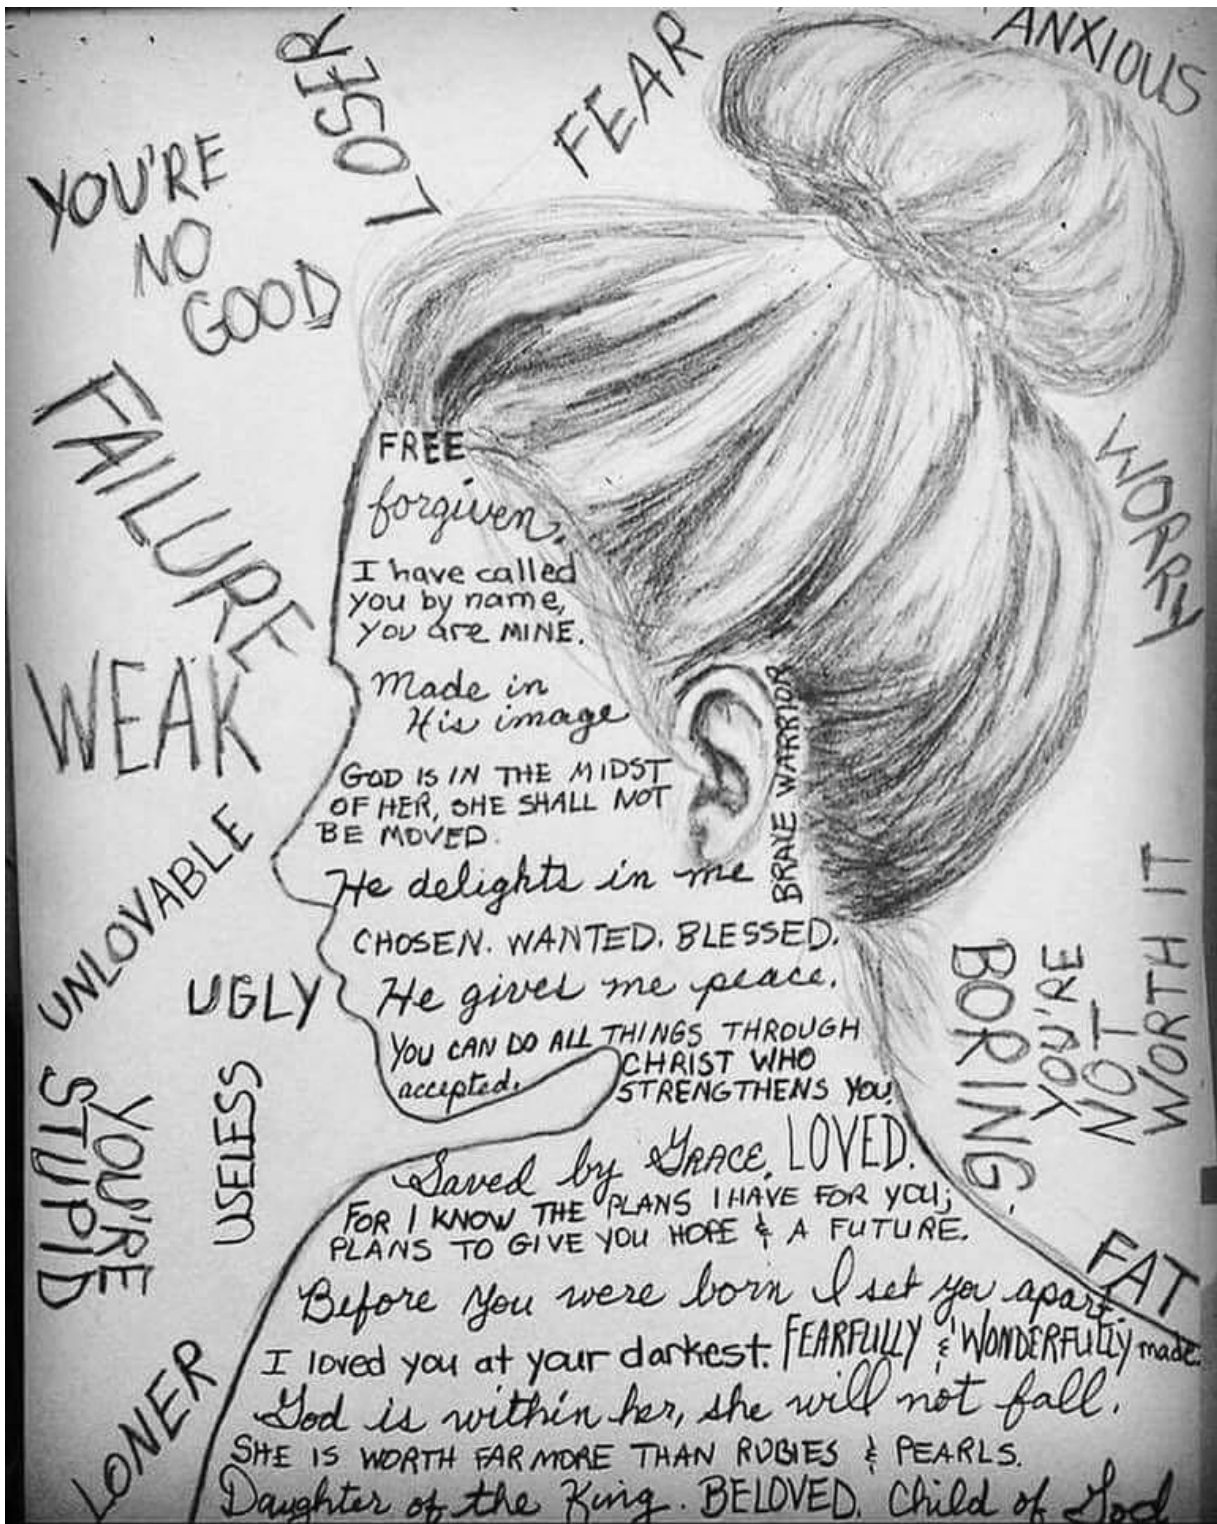 LOSER
FEAR
ANXIOUS
YOU'RE
NO
GOOD
FAILURE
WEAK
UNLOVABLE
UGLY
USELESS
YOU'RE
STUPID
LONER
WORRY
BORING.
YOU'RE
NOT
WORTH IT
FAT
FREE
forgiven.
I have called
you by name,
you are MINE.
Made in
His image
GOD IS IN THE MIDST
OF HER, SHE SHALL NOT
BE MOVED.
BRAVE WARRIOR
He delights in me
CHOSEN. WANTED. BLESSED.
He gives me peace.
YOU CAN DO ALL THINGS THROUGH
CHRIST WHO
accepted.
STRENGTHENS YOU.
Saved by GRACE. LOVED.
FOR I KNOW THE PLANS I HAVE FOR YOU;
PLANS TO GIVE YOU HOPE & A FUTURE.
Before you were born I set you apart
I loved you at your darkest. FEARFULLY & WONDERFULLY made.
God is within her, she will not fall.
SHE IS WORTH FAR MORE THAN RUBIES & PEARLS.
Daughter of the King. BELOVED. Child of God